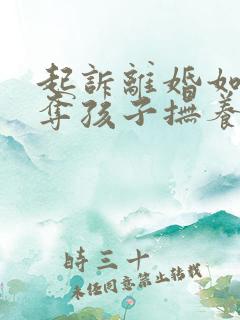 起訴離婚如
奪孩子撫養
時三十
未经同意禁止转载